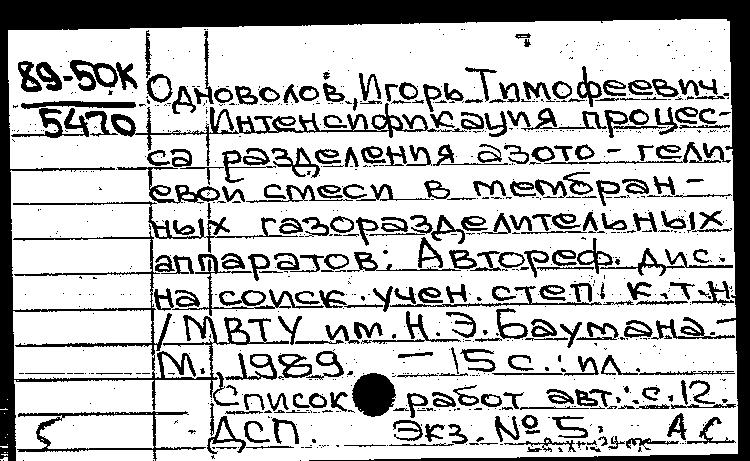 89-50К
5470
Одноволов, Игорь Тимофеевич.
Интенсификация процес-
са разделения азото-гели-
евой смеси в мембран-
ных газоразделительных
аппаратов: Автореф. дис.
на соиск. учен. степ. к.т.н
/МВТУ им. Н.Э.Баумана.-
М., 1989. - 15 с.: ил.
Список работ авт.: с.12.
5 ДСП. Экз. № 5. АС